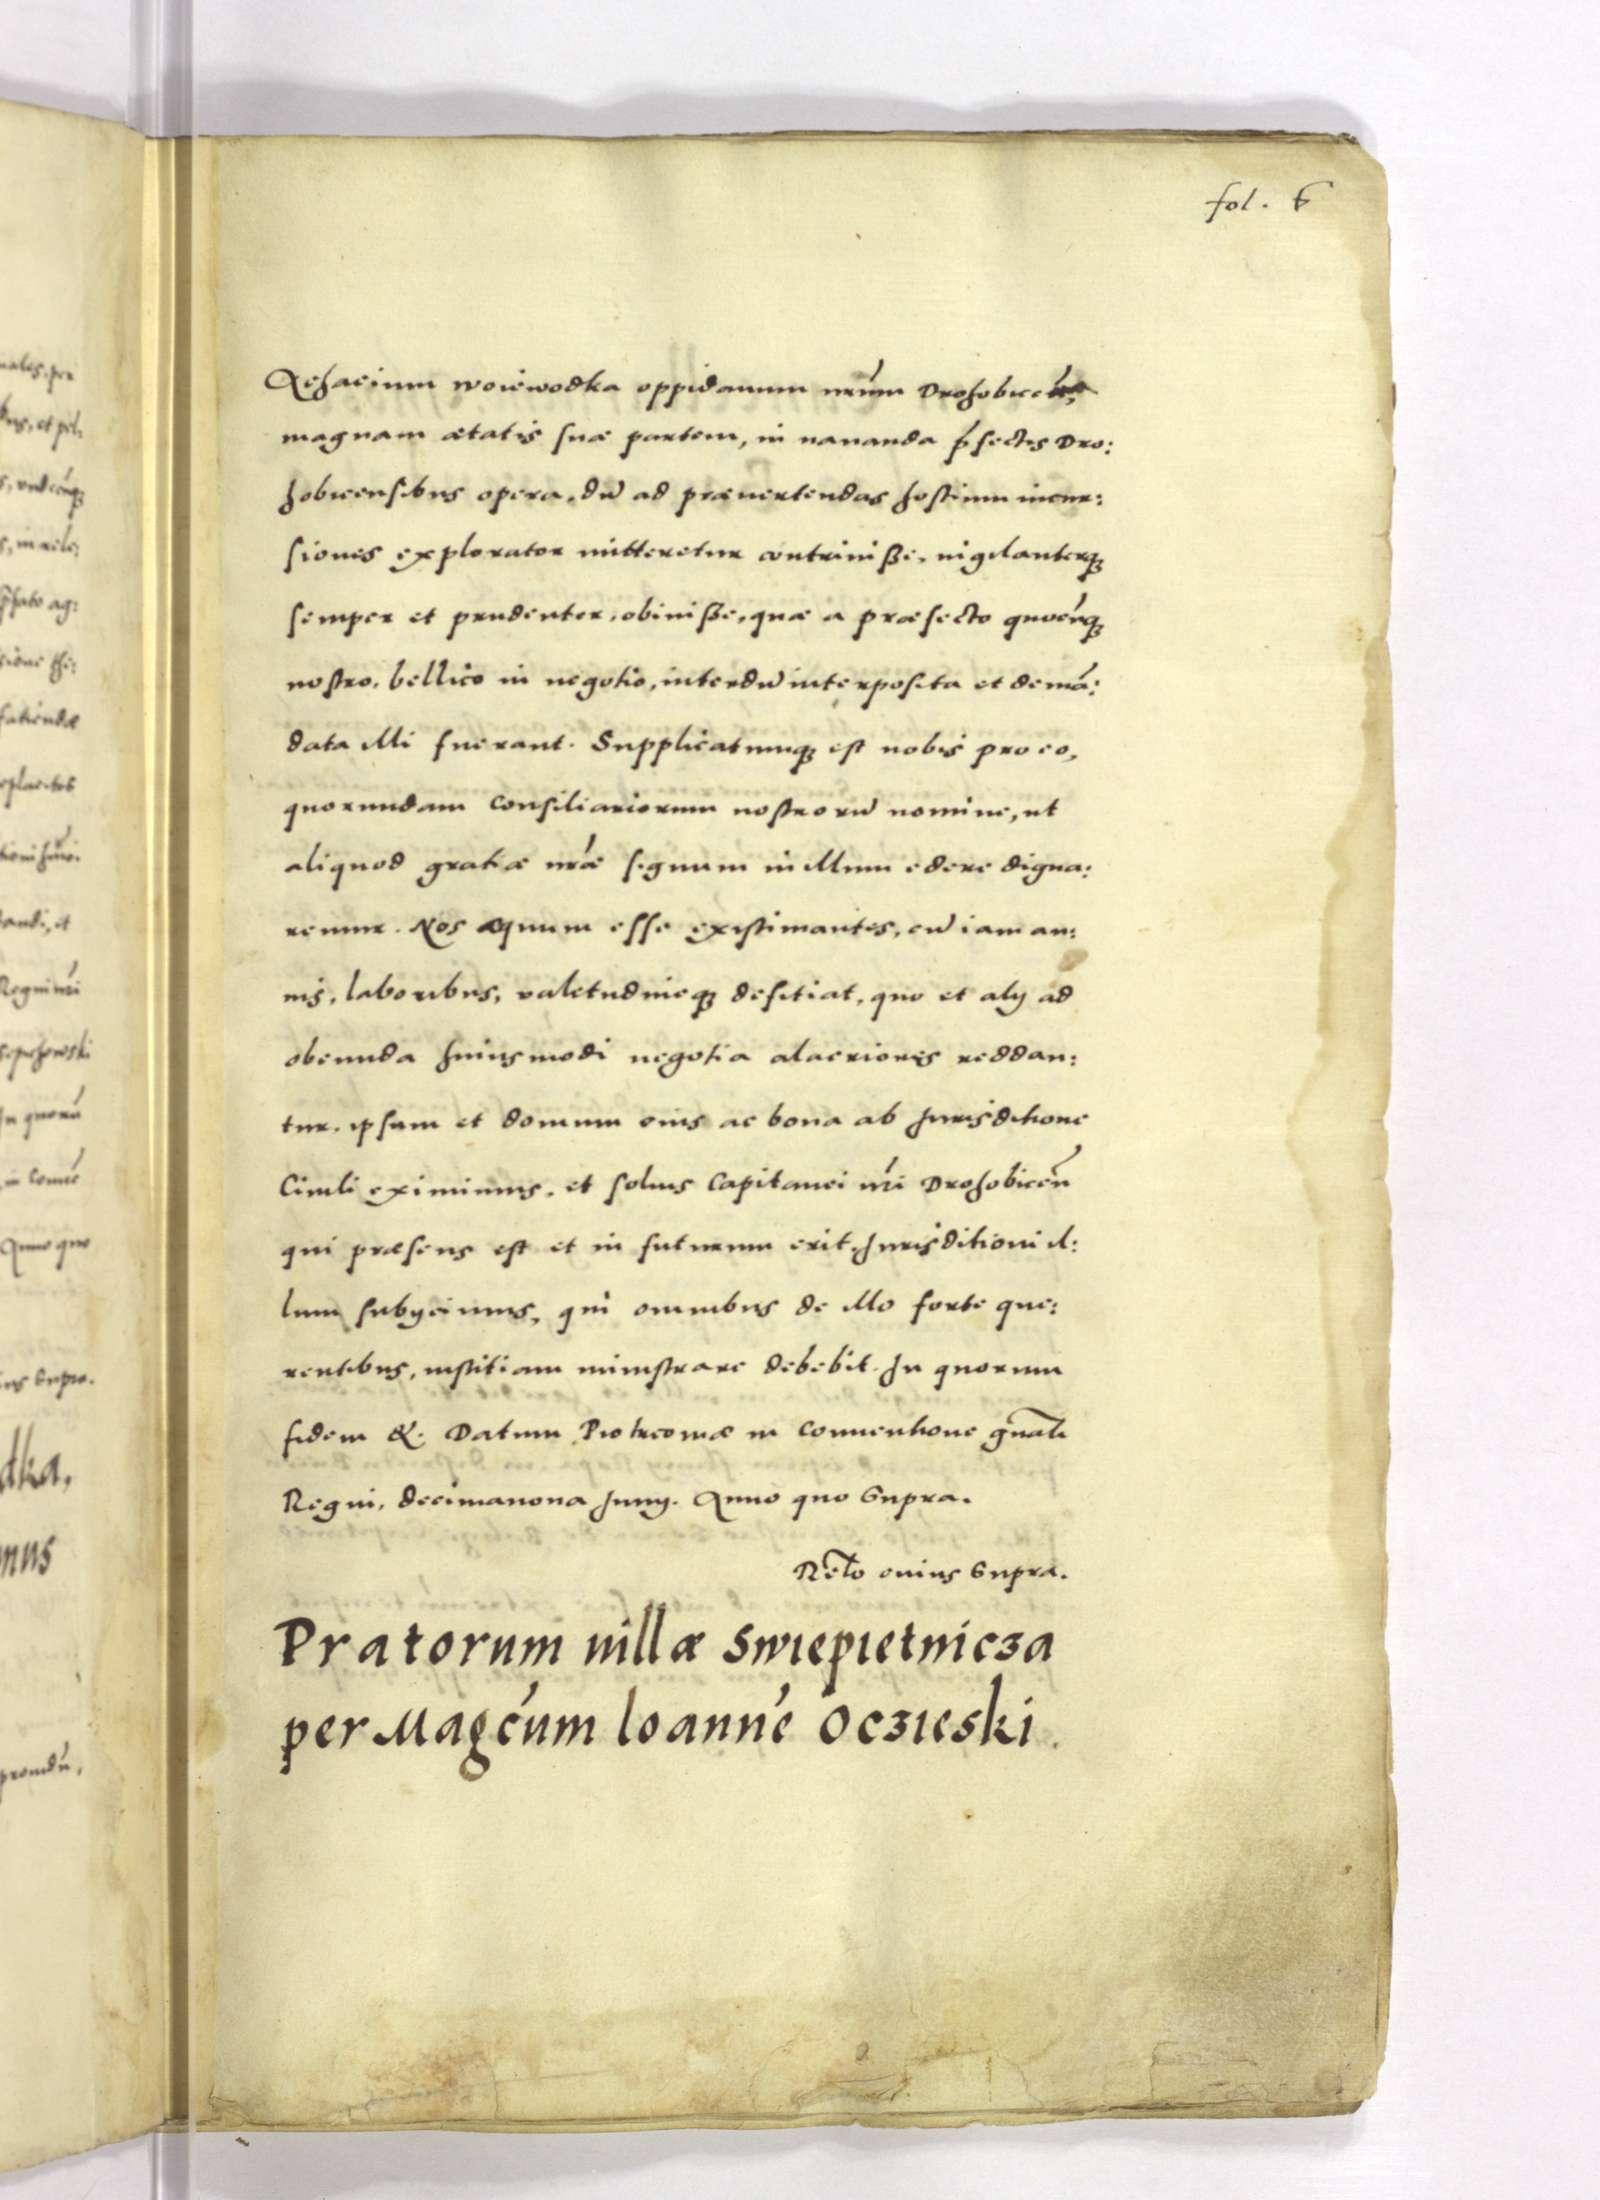 fol. 6
Achacium woiewodka oppidanum nrum Drohobicen̄,
magnam ætatis suæ partem, in nauanda p̄fectis Dro:
hobicensibus opera, dū ad præuertendas hostium incur:
siones explorator mitteretur contriuiße, uigilanterq;
semper et prudenter, obiuiße, quæ a præfecto quocūq;
nostro, bellico in negotio, interdū interposita et demā:
data illi fuerant. Supplicatumq; est nobis pro eo,
quorundam consiliariorum nostrorū nomine, ut
aliquod gratiæ nræ signum in illum edere digna:
remur. Nos æquum esse existimantes, cū iam an:
nis, laboribus, valetudineq; defitiat, quo et alij ad
obeunda huiusmodi negotia alacriores reddan:
tur, ipsum et domum eius ac bona ab Jurisditione
Ciuili eximimus, et solius Capitanei nri Drohobicen̄
qui præsens est et in futurum erit, Jurisditioni il:
lum subijcimus, qui omnibus de illo forte que:
rentibus, iustitiam ministrare debebit. In quorum
fidem &. Datum Piotrcouiæ in Conuentione gn̄ali
Regni, decimanona Junij. Anno quo Supra.
Rel̄o cuius Supra.
Pratorum uillæ Swiepietnicza
per Magcum Ioannē Oczieski.